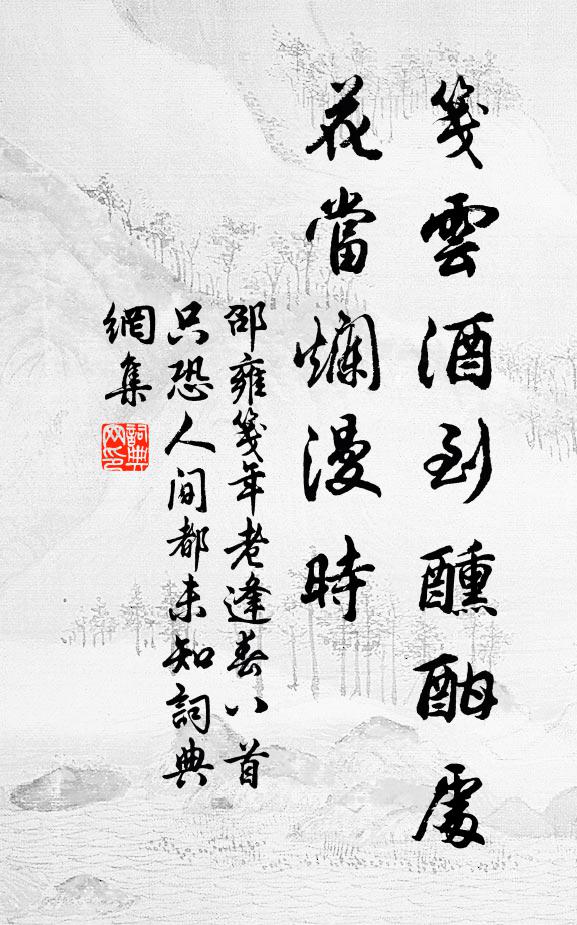 箋雲酒到醺酣處
花當爛漫時
邵雍箋年老逢春八首
只恐人间都未知詞典
網集
詞典網印